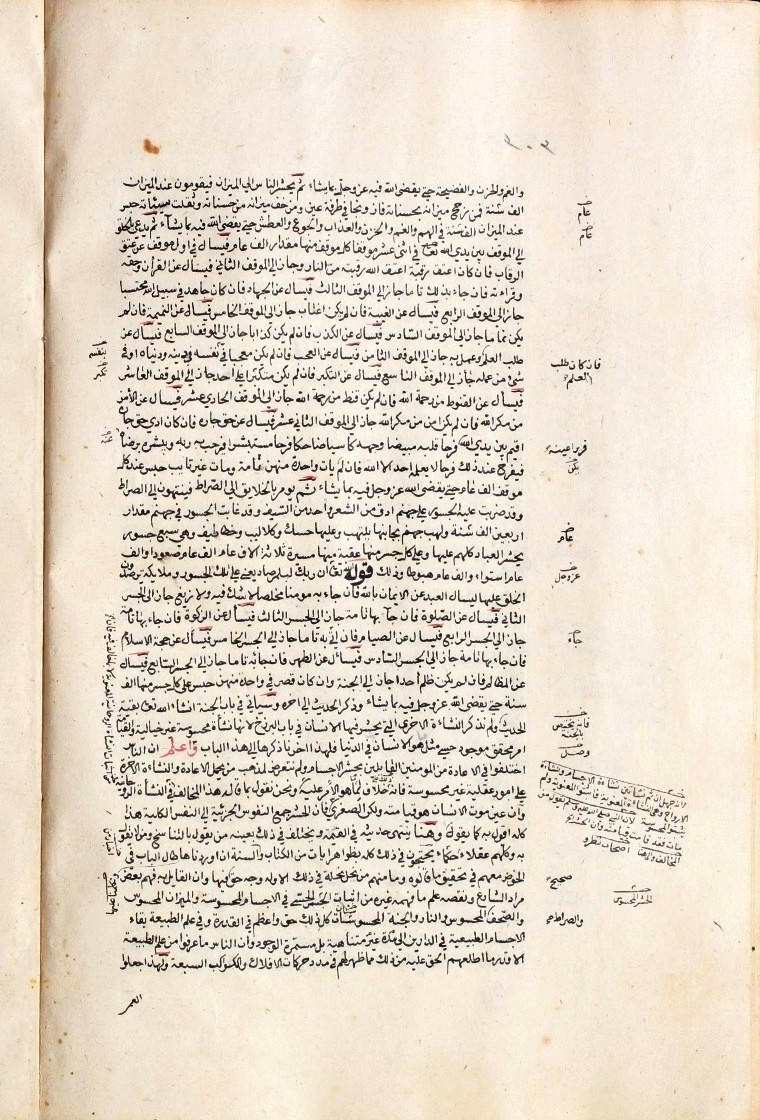 والغم والحزن والفضيحة حتى يقضى الله فيه عز وجل بما يشاء ثم يحشر الناس الى الميزان فيقومون عند الميزان
الف سنة فمن رجح ميزانه بحسناته فاز ونجا فى طرفة عين ومن خف ميزانه من حسناته وثقلت سيئاته حبس
عند الميزان الف سنة فى الهم والغم والحزن والعذاب والجوع والعطش حتى يقضى الله فيه بما يشاء ثم يدعى بالخلق
الى الموقف بين يدى الله تعالى فى اثنى عشر موقفا كل موقف منها مقدار الف عام فيسال فى اول موقف عن عتق
الرقاب فان كان اعتق رقبة اعتق الله رقبته من النار وجاز الى الموقف الثانى فيسال عن القرأن وحقه
وقراءته فان جاء بذلك تاما جاز الى الموقف الثالث فيسال عن الجهاد فان كان جاهد فى سبيل الله محتسبا
جاز الى الموقف الرابع فيسال عن الغيبة فان لم يكن اغتاب جاز الى الموقف الخامس فيسال عن النميمة فان لم
يكن نماما جاز الى الموقف السادس فيسال عن الكذب فان لم يكن كذابا جاز الى الموقف السابع فيسال عن
طلب العلم وعمل به جاز الى الموقف الثامن فيسال عن العجب فان لم يكن معجبا فى نفسه فى دينه ودنياه او فى
شئ من عمله جاز الى الموقف التاسع فيسال عن التكبر فان لم يكن متكبرا على احد جاز الى الموقف العاشر
فيسأل عن القنوط من رحمة الله فان لم يكن قنط من رحمة الله جاز الى الموقف الحادى عشر فيسال عن الامن
من مكر الله فان لم يكن امن من مكر الله جاز الى الموقف الثانى عشر فيسال عن حق جاره فان كان ادى حق جاره
اقيم بين يدى الله فرحا قلبه مبيضا وجهه كاسيا ضاحكا فرحا مستبشرا فرحب به ربه وبشره برضاه
فيفرح عند ذلك فرحا لا يعلمه احد الا الله فان لم يات واحدة منهن تامة ومات غير تايب حبس عند كل
موقف الف عام حتى يقضى الله عز وجل فيه بما يشاء ثم يومر بالخلايق الى الصراط فينتهون الى الصراط
وقد ضربت عليه الجسور على جهنم ادق من الشعر واحد من السيف وقد غابت الجسور فى جهنم مقدار
اربعين الف سنة ولهب جهنم بجانبها يلتهب وعليها حسك وكلاليب وخطاطيف وهى سبع جسور
يحشر العباد كلهم عليها وعلى كل جسر منها عقبة منها مسيرة ثلاثة الاف عام الف عام صعودا والف
عام استواء والف عام هبوطا وذلك قوله تعالى ان ربك لبالمرصاد يعنى على تلك الجسور وملايكة يرصدون
الخلق عليها ليسال العبد عن الايمان بالله فان جاء به مومنا مخلصا لا شك فيه ولا زيغ جاز الى الجسر
الثانى فيسال عن الصلوة فان جاء بها تامة جاز الى الجسر الثالث فيسأل عن الزكوة فان جاء بها تامة
جاز الى الجسر الرابع فيسال عن الصيام فان اتى به تاما جاز الى الجسر الخامس فيسأل عن حجة الاسلام
فان جاء بها تامة جاز الى الجسر السادس فيسأل عن الطهر فان جاء به تاما جاز الى الجسر السابع فيسال
عن المظالم فان لم يكن ظلم احدا جاز الى الجنة وان كان قصر فى واحدة منهن حبس على كل جسر منها الف
سنة حتى يقضى الله عز وجل فيه بما يشاء وذكر الحديث الى اخره وسياتى فى باب الجنة انشاء الله تعالى بقية
الحديث ولم نذكر النشاءة الاخرى التى يحشر فيها الانسان فى باب البرزخ لانها نشأة محسوسة غير خيالية والقيامة
امر محقق موجود حسى مثل هو الانسان فى الدنيا فلهذا اخرنا ذكرها الى هذا الباب واعلم ان الناس
اختلفوا فى الاعادة من المومنين القايلين بحشر الاجسام ولم نتعرض لمذهب من يحمل الاعادة والنشاءة الاخرة
على امور عقلية غير محسوسة فان ذلك خلاف لما هو الامر عليه ونحن نقول بما قاله هذا المخالف
وان عين موت الانسان هو قيامته ولكن الصغرى فان الحشر جمع النفوس الجزئية الى النفس الكلية هذا
كله اقول به كما يقول وهنا ينتهى حديثه فى القيمة ويختلف فى ذلك بعينه من يقول بالتناسخ ومن لا يقول
به وكلهم عقلاء حكماء يحتجون فى ذلك كله بظواهر ايات من الكتاب والسنة ان اوردناها طال الباب فى
الخوض معهم فى تحقيق ما قالوه وما منهم من نحل نحلة فى ذلك الا وله وجه حق اليها وان القايل به فهم بعض
مراد الشارع ونقصه علم ما فهمه غيره من اثبات الحشر الحسى فى الاجسام المحسوسة والميزان المحسوس
والصحف المحسوس والنار والجنة المحسوستان كل ذلك حق واعظم فى القدرة وفى علم الطبيعة بقاء
الاجسام الطبيعية فى الدارين الى مدة غير متناهية بل مستمرة الوجود وان الناس ما عرفوا من علم الطبيعة
الا قدر ما اطلعهم الحق عليه من ذلك مما ظهر لهم فى مدد حركات الافلاك والكواكب السبعة ولهذا جعلوا
العمر
عام
عام
فان كان طلب
العلم
عام
عز وجل
جاء
فانه يختص
بالجنة
وصل
صحيح
الحشر المحسوس
والصراط